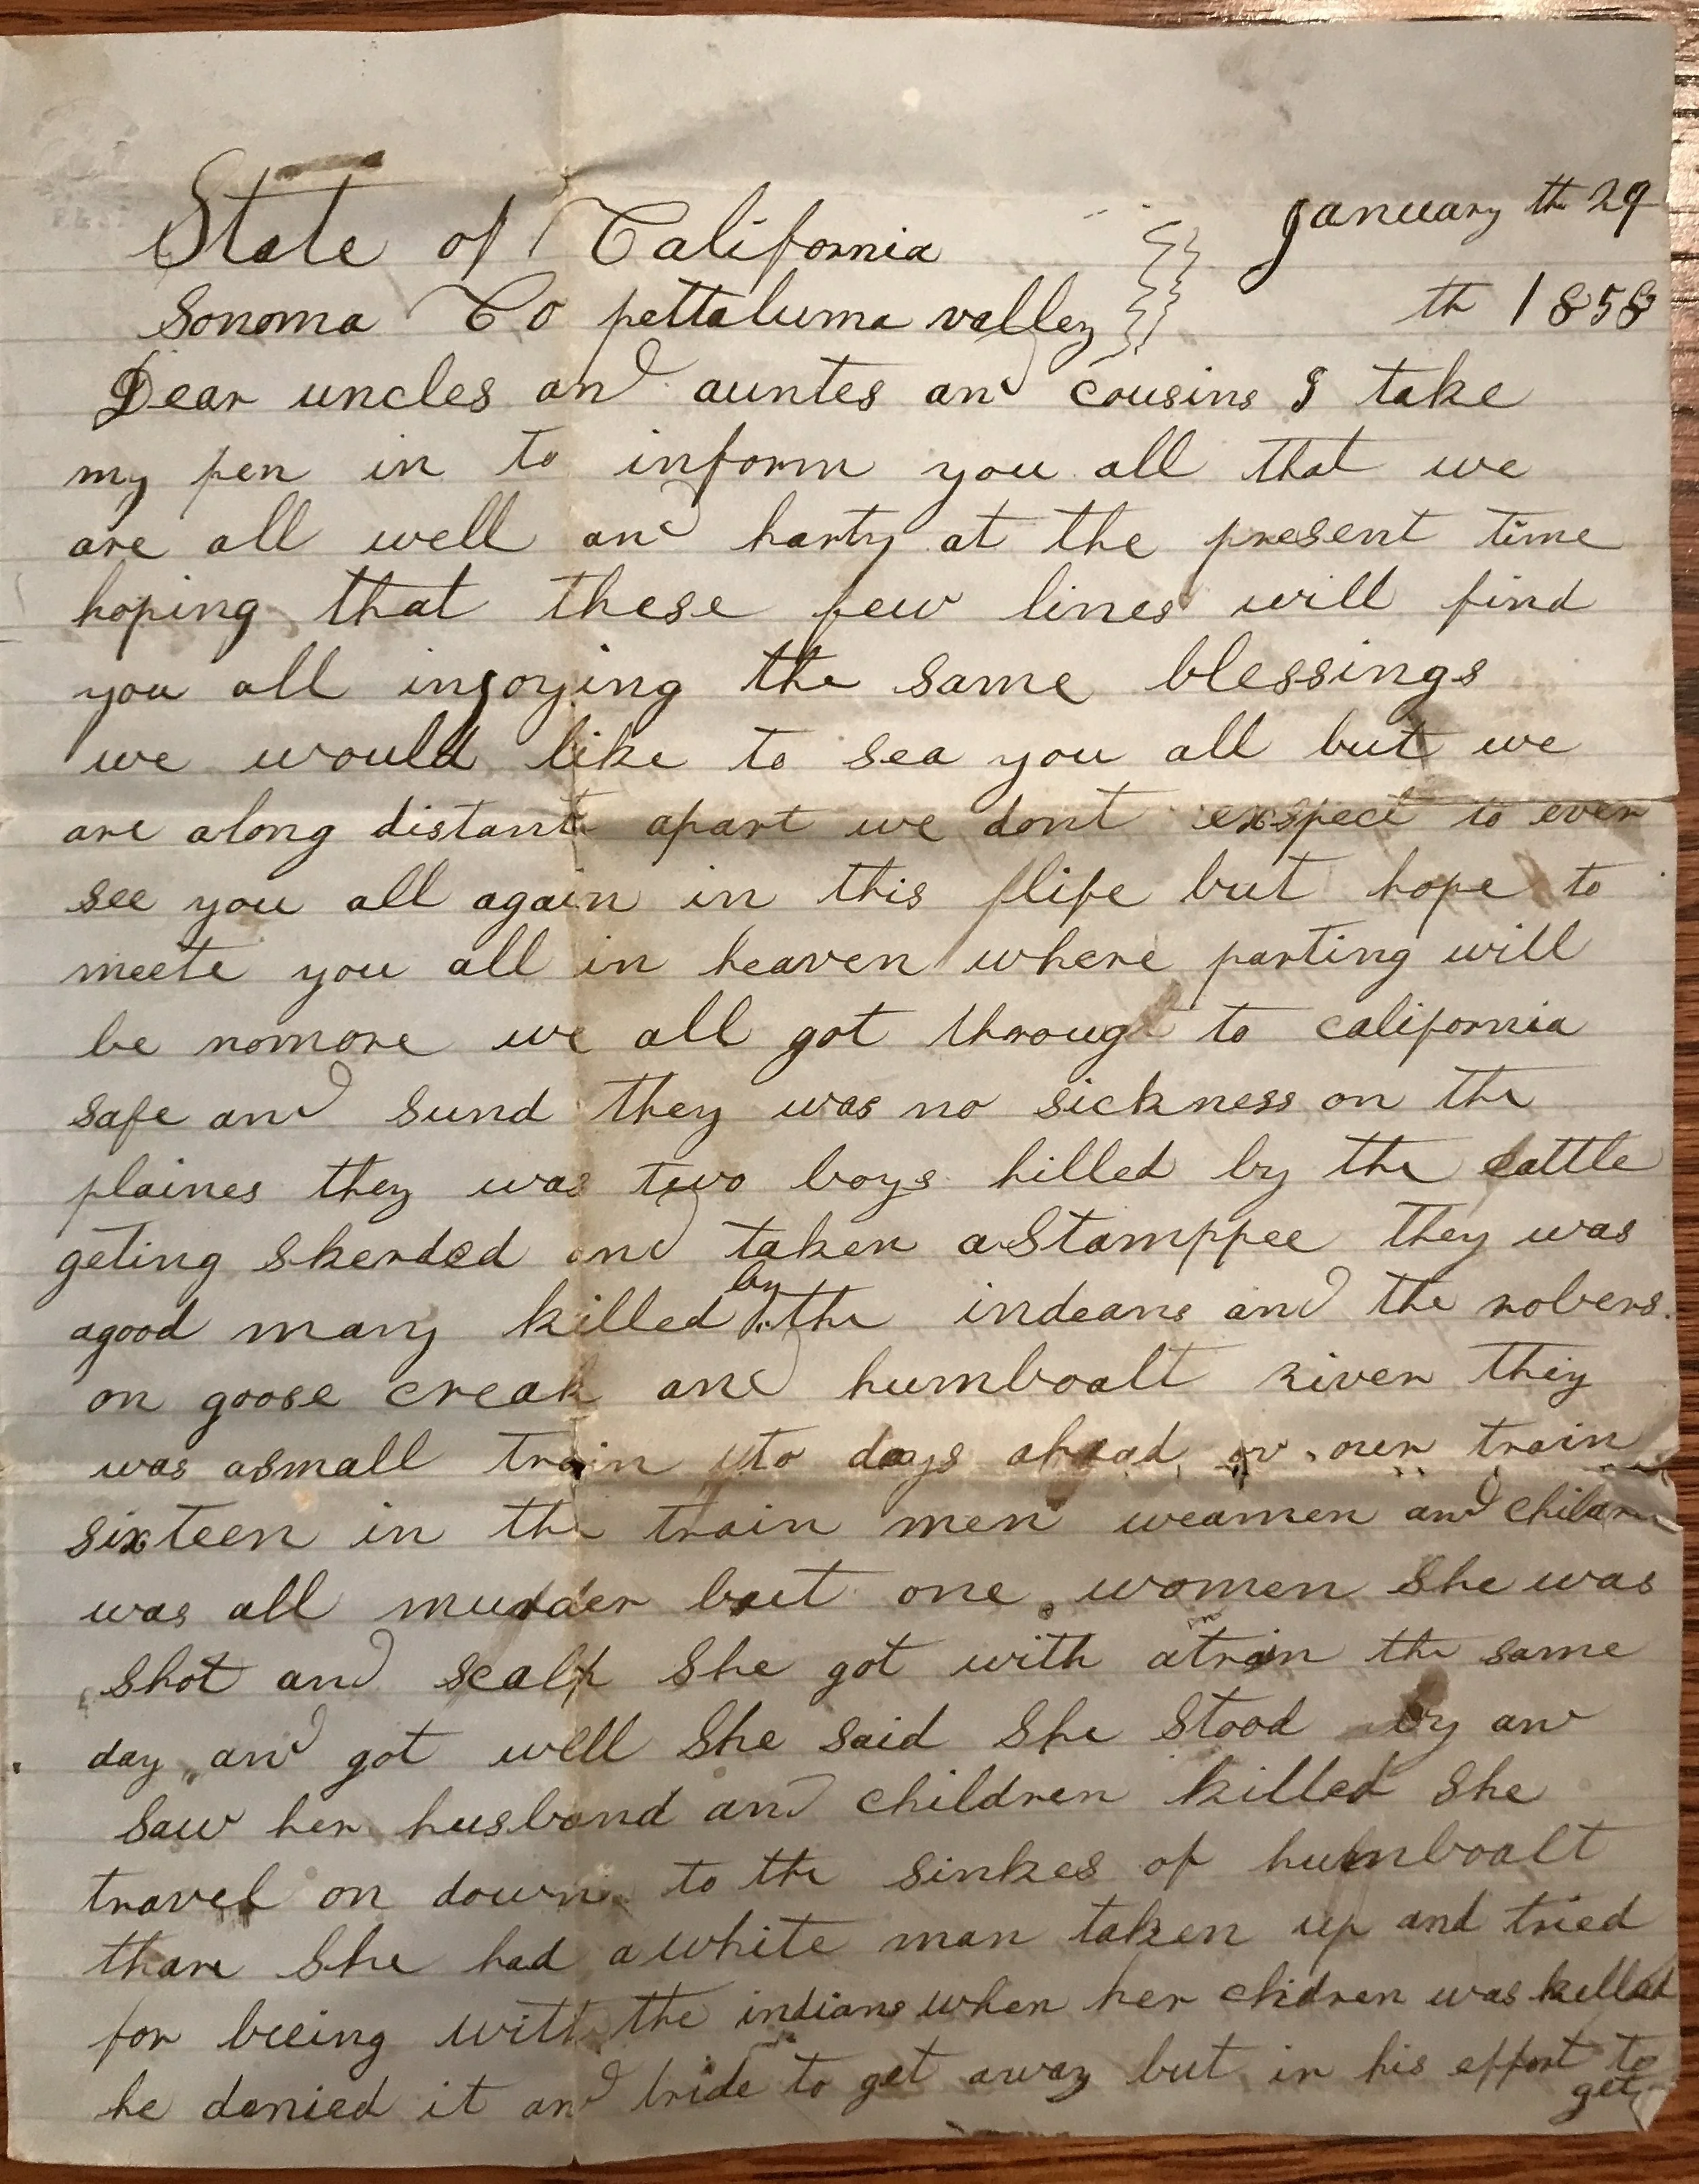 State of California January th 29
Sonoma Co pettaluma valley th 1858
Dear uncles and auntes and cousins I take
my pen in to inform you all that we
are all well and harty at the present time
hoping that these few lines will find
you all injoying the same blessings
we would like to sea you all but we
are along distant apart we dont exspect to ever
see you all again in this life but hope to
meete you all in heaven where parting will
be nomore we all got through to california
safe and sund they was no sickness on the
plaines they was two boys killed by the cattle
geting skerded and taken a stamppee they was
agood many killed by the indeans and the robers
on goose creak and humboalt river they
was asmall train to days ahead ov our train
sixteen in the train men weamen and childrn
was all murder but one women she was
shot and scalp she got with atrain the same
day and got well she said she stood by and
saw her husband and children killed she
travel on down to the sinkes of humboalt
thare she had awhite man taken up and tried
for beeing with the indians when her chidren was killed
he denied it and tride to get away but in his effort to
get